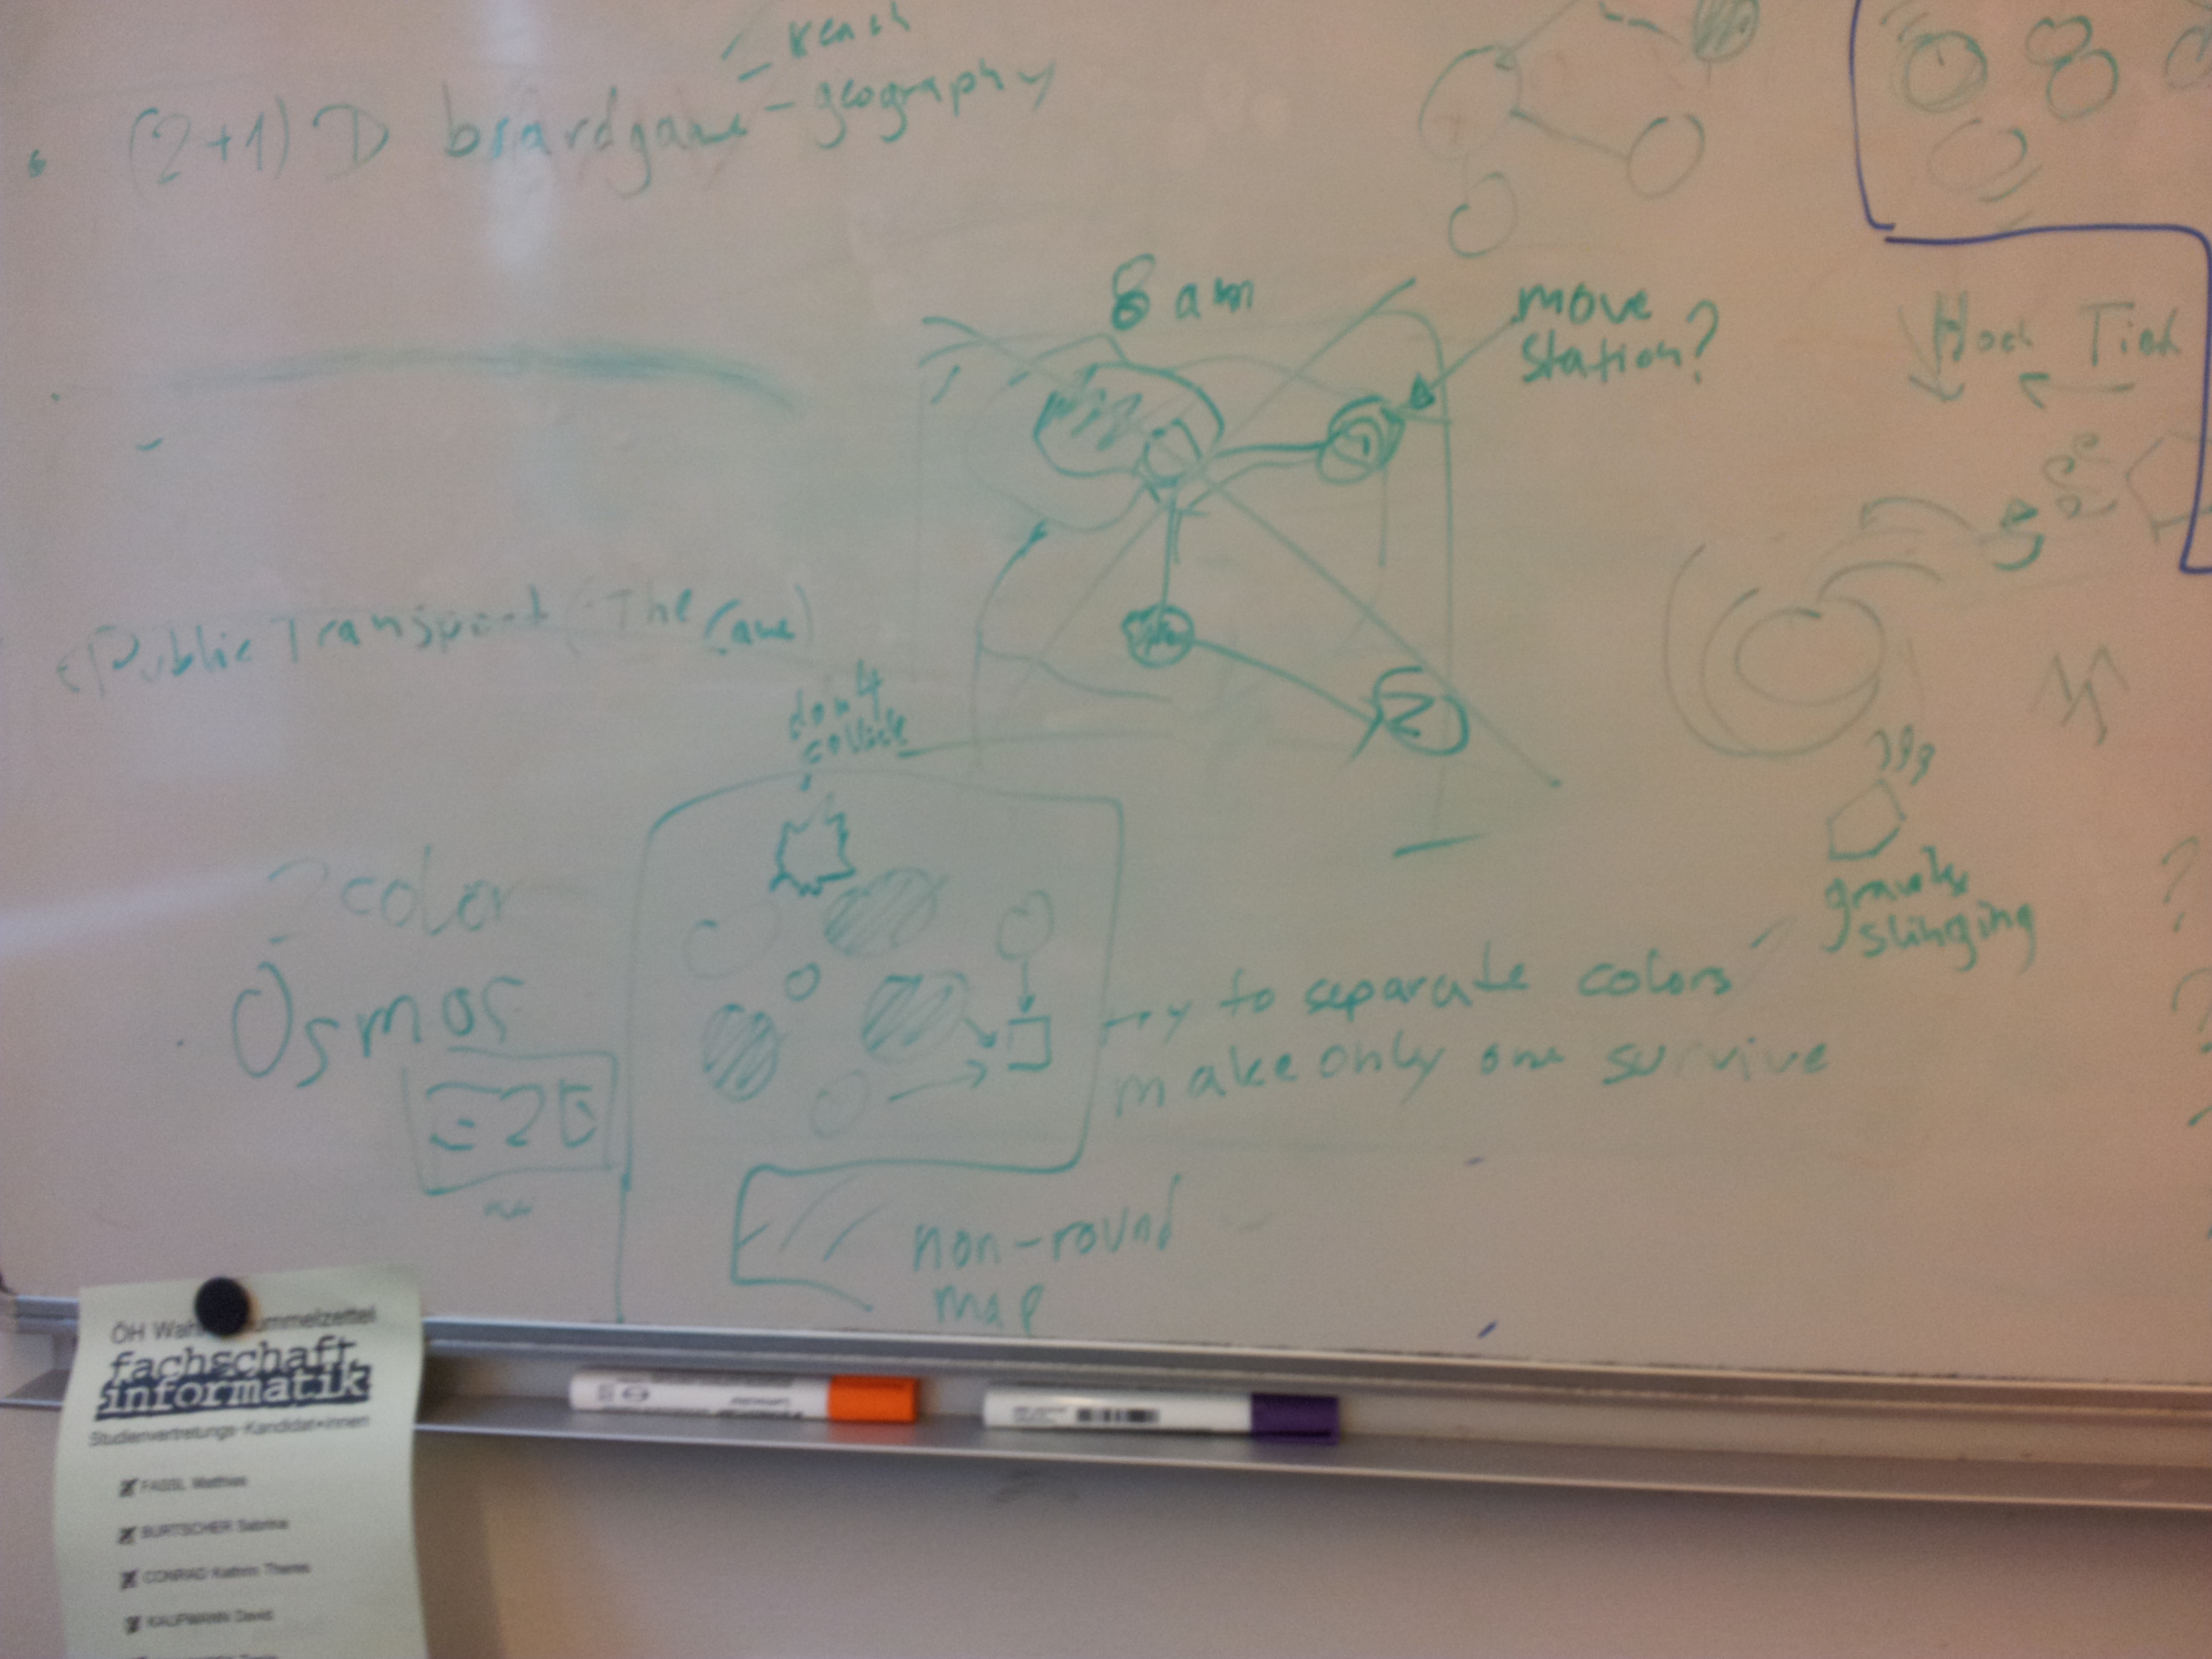 - reach
(2+1) D boardgame - geography
8 am
move
station?
Hoch Tief
Public Transport (The Game)
don't
collide
2 color
Osmos
gravity
slinging
try to separate colors
make only one survive
non-round
map
fachschaft
informatik
Studienvertretungs-Kandidat*innen
FASSL Matthias
BURTSCHER Sabrina
CONRAD Kathrin Theres
KAUFMANN David